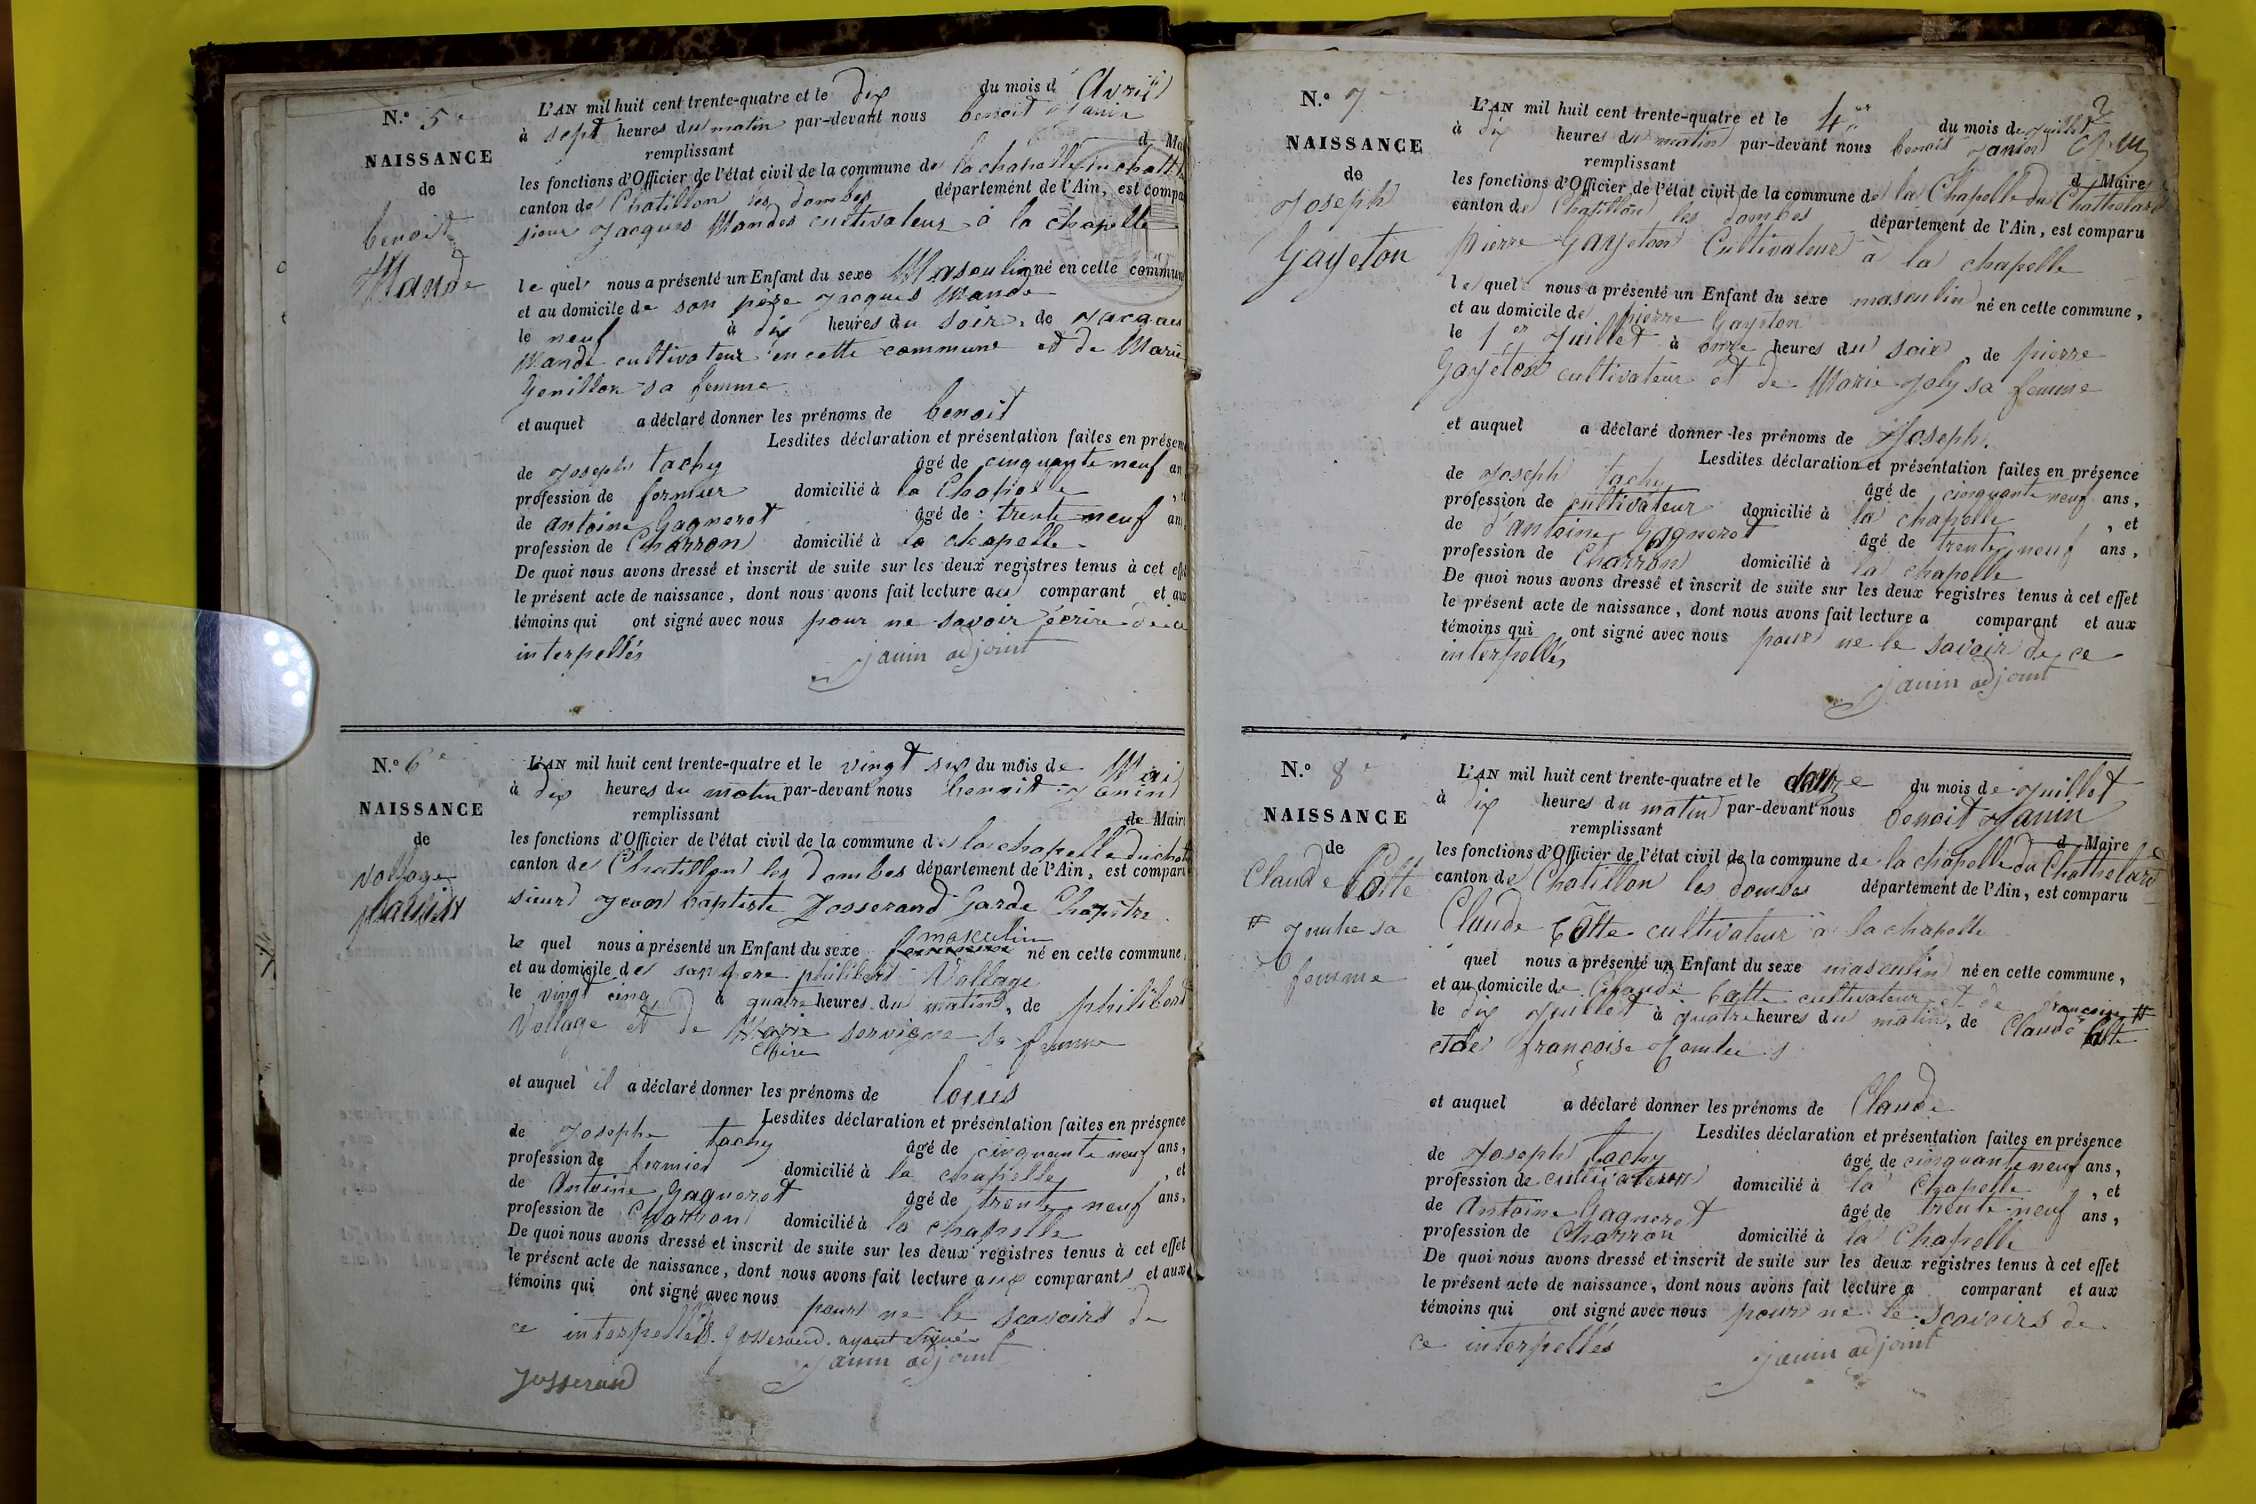 N.o 5e
NAISSANCE
de
benoit
Mande
L'AN mil huit cent trente-quatre et le dix du mois d Avril
à sept heures du matin par-devant nous benoit Janin
remplissant d Mai
les fonctions d'Officier de l'état civil de la commune de la chapelle du chatt
canton de Chatillon les dombes département de l'Ain, est compa
sieur Jacques Mandes cultivateur à la chapelle
le quel nous a présenté un Enfant du sexe Masculin né en cette commune
et au domicile de son père Jacques Mande
le neuf à dix heures du soir, de Jacques
Mande cultivateur en cette commune et de Marie
Genillon sa femme
et auquel a déclaré donner les prénoms de benoit
Lesdites déclaration et présentation faites en présen
de Joseph tachy âgé de cinquante neuf an
profession de fermier domicilié à la Chapelle
de antoine Gagneret âgé de trente neuf an
profession de Charron domicilié à la chapelle
De quoi nous avons dressé et inscrit de suite sur les deux registres tenus à cet effet
le présent acte de naissance, dont nous avons fait lecture au comparant et aux
témoins qui ont signé avec nous pour ne savoir écrire de ce
interpellés
Janin adjoint
N.o 6e
NAISSANCE
de
Vollage
L'AN mil huit cent trente-quatre et le vingt six du mois de Mai
à dix heures du matin par-devant nous benoit Janin
remplissant de Maire
les fonctions d'Officier de l'état civil de la commune de la chapelle du chat
canton de Chatillon les Dombes département de l'Ain, est comparu
sieur Jean baptiste Josserand Garde Chapêtre
masculin
le quel nous a présenté un Enfant du sexe né en cette commune,
et au domicile de son pere philibert Vollage
le vingt cinq à quatre heures du matin, de philibert
Vollage et de Marie servigne sa femme
Claire
et auquel il a déclaré donner les prénoms de louis
Lesdites déclaration et présentation faites en présence
de Josephe tachy âgé de cinquante neuf ans,
profession de fermier domicilié à la chapelle, et
de Antoine Gagneret âgé de trente neuf ans,
profession de Charron domicilié à la chapelle
De quoi nous avons dressé et inscrit de suite sur les deux registres tenus à cet effet
le présent acte de naissance, dont nous avons fait lecture aux comparants et aux
témoins qui ont signé avec nous pour ne le scavoirs de
ce interpellés. Josserand. ayant signé
Janin adjoint
Josserand
2
N.o 7e
NAISSANCE
de
Joseph
Gayeton
L'AN mil huit cent trente-quatre et le 4er du mois de Juillet
à dix heures du matin par-devant nous benoit Janin
remplissant d Maire
les fonctions d'Officier de l'état civil de la commune de la Chapelle du Chathelard
canton de Chatillon les dombes département de l'Ain, est comparu
pierre Gayeton Cultivateur à la chapelle
le quel nous a présenté un Enfant du sexe masculin né en cette commune,
et au domicile de pierre Gayeton
le 1er Juillet à onze heures du soir, de pierre
Gayeton cultivateur et de Marie Joly sa femme
et auquel a déclaré donner les prénoms de Joseph.
Lesdites déclaration et présentation faites en présence
de Joseph tachy âgé de cinquante neuf ans,
profession de cultivateur domicilié à la chapelle, et
de d'antoine Gagneret âgé de trente neuf ans,
profession de Charron domicilié à la chapelle
De quoi nous avons dressé et inscrit de suite sur les deux registres tenus à cet effet
le présent acte de naissance, dont nous avons fait lecture a comparant et aux
témoins qui ont signé avec nous pour ne le savoir de ce
interpellés
Janin adjoint
N.o 8e
NAISSANCE
de
Claude Cotte
# Jomlee sa
femme
L'AN mil huit cent trente-quatre et le du mois de Juillet
à dix heures du matin par-devant nous benoit Janin
remplissant d Maire
les fonctions d'Officier de l'état civil de la commune de la chapelle du Chathelard
canton de Chatillon les dombes département de l'Ain, est comparu
Claude Cotte cultivateur à la chapelle
quel nous a présenté un Enfant du sexe masculin né en cette commune,
et au domicile de Claude Cotte cultivateur et de françoise #
le dix Juillet à quatre heures du matin, de Claude Cotte
et de françoise Jomlee
et auquel a déclaré donner les prénoms de Claude
Lesdites déclaration et présentation faites en présence
de Joseph tachy âgé de cinquante neuf ans,
profession de cultivateur domicilié à la Chapelle, et
de Antoine Gagneret âgé de trente neuf ans,
profession de Charron domicilié à la Chapelle
De quoi nous avons dressé et inscrit de suite sur les deux registres tenus à cet effet
le présent acte de naissance, dont nous avons fait lecture a comparant et aux
témoins qui ont signé avec nous pour ne le scavoirs de
ce interpellés
Janin adjoint